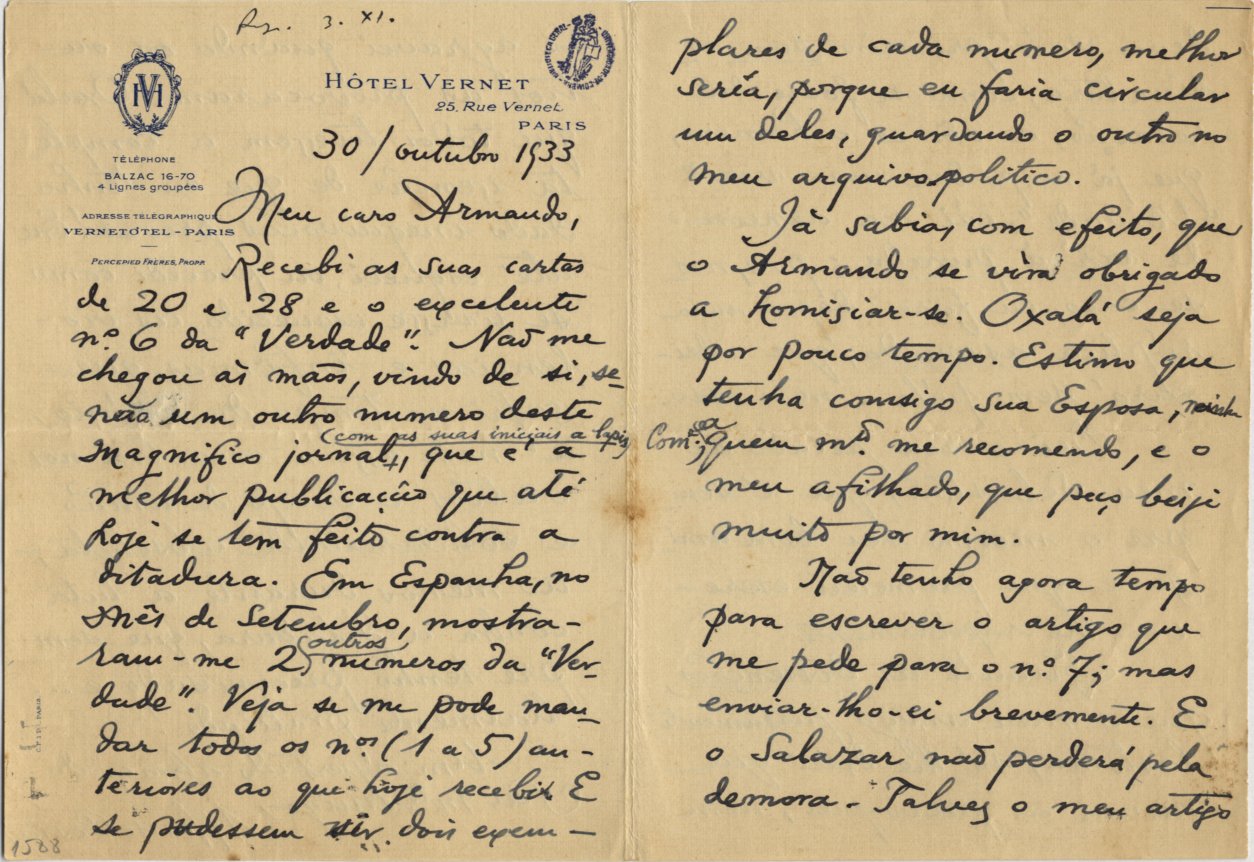 Rp. 3. XI.
HÔTEL VERNET
25, Rue Vernet
PARIS
HV
TÉLÉPHONE
BALZAC 16-70
4 Lignes groupées
ADRESSE TÉLÉGRAPHIQUE
VERNETÔTEL - PARIS
PERCEPIED FRÈRES, PROPR
30/outubro 1933
Meu caro Armando,
Recebi as suas cartas
de 20 e 28 e o excelente
nº 6 da "Verdade". Não me
chegou às mãos, vindo de si, se-
não um outro numero deste
(com as suas iniciais a lapis)
magnifico jornal, que é a
melhor publicação que até
hoje se tem feito contra a
ditadura. Em Espanha, no
mês de Setembro, mostra-
ram-me 2 outros numeros da "Ver-
dade". Veja se me pode man-
dar todos os nºs (1 a 5) an-
teriores ao que hoje recebi. E
se pudessem vir dois exem-
1588
plares de cada numero, melhor
seria, porque eu faria circular
um deles, guardando o outro no
meu arquivo politico.
Já sabia, com efeito, que
o Armando se vira obrigado
a homisiar-se. Oxalá seja
por pouco tempo. Estimo que
tenha comsigo sua Esposa,
a quem mtº. me recomendo, e o
meu afilhado, que peço beije
muito por mim.
Não tenho agora tempo
para escrever o artigo que
me pede para o nº. 7; mas
enviar-lho-ei brevemente. E
o Salazar não perderá pela
demora. Talvez o meu artigo